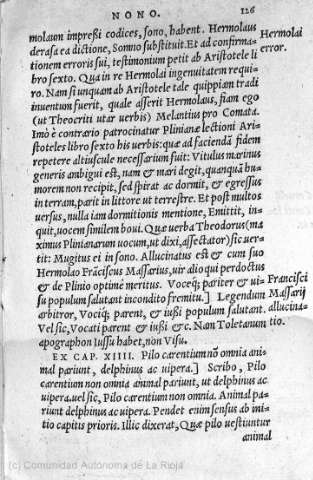 NONO. 126
molaum impreßi codices, sono, habent. Hermolaus
derasa ea dictione, Somno substituit. Et ad confirma- Hermolai
tionem erroris sui, testimonium petit ab Aristotele li error.
bro sexto. Qua in re Hermolai ingenuitatem requi-
ro. Nam si unquam ab Aristotele tale quippiam tradi
inuentum fuerit, quale asserit Hermolaus, fiam ego
(ut Theocriti utar uerbis) Melantius pro Comata.
Imò è contrario patrocinatur Plinianæ lectioni Ari-
stoteles libro sexto his uerbis: quæ ad faciendā fidem
repetere altiuscule necessarium fuit: Vitulus marinus
generis ambigui est, nam & mari degit, quanquā hu-
morem non recipit, sed spirat ac dormit, & egressus
in terram, parit in littore ut terrestre. Et post multos
uersus, nulla iam dormitionis mentione, Emittit, in-
quit, uocem similem boui. Quæ uerba Theodorus (ma
ximus Plinianarum uocum, ut dixi, affectator) sic uer-
tit: Mugitus ei in sono. Allucinatus est & cum suo
Hermolao Frāciscus Massarius, uir alioqui perdoctus
& de Plinio optime meritus. Voceq́; pariter & ui- Francisci
su populum salutant incondito fremitu.] Legendum Massarij
arbitror, Vociq́; parent, & iußi populum salutant. allucina-
Vel sic, Vocati parent & iußi & c. Nam Toletanum tio.
apographon Iussu habet, non Visu.
EX CAP. XIIII. Pilo carentium nō omnia ani
mal pariunt, delphinus ac uipera.] Scribo, Pilo
carentium non omnia animal pariunt, ut delphinus ac
uipera. uel sic, Pilo carentium non omnia. Animal pa-
riunt delphinus ac uipera. Pendet enim sensus ab ini-
tio capitis prioris. Illic dixerat, Quæ pilo uestiuntur
animal
(c) Comunidad Autónoma de La Rioja